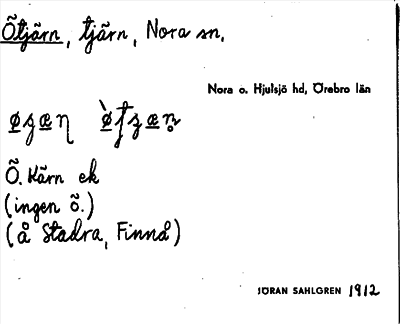 Õtjärn, tjärn, Nora sn.
Nora o. Hjulsjö hd, Örebro län
Õ. Kärn ek
(ingen õ.)
(å Stadra, Finnå)
JÖRAN SAHLGREN 1912